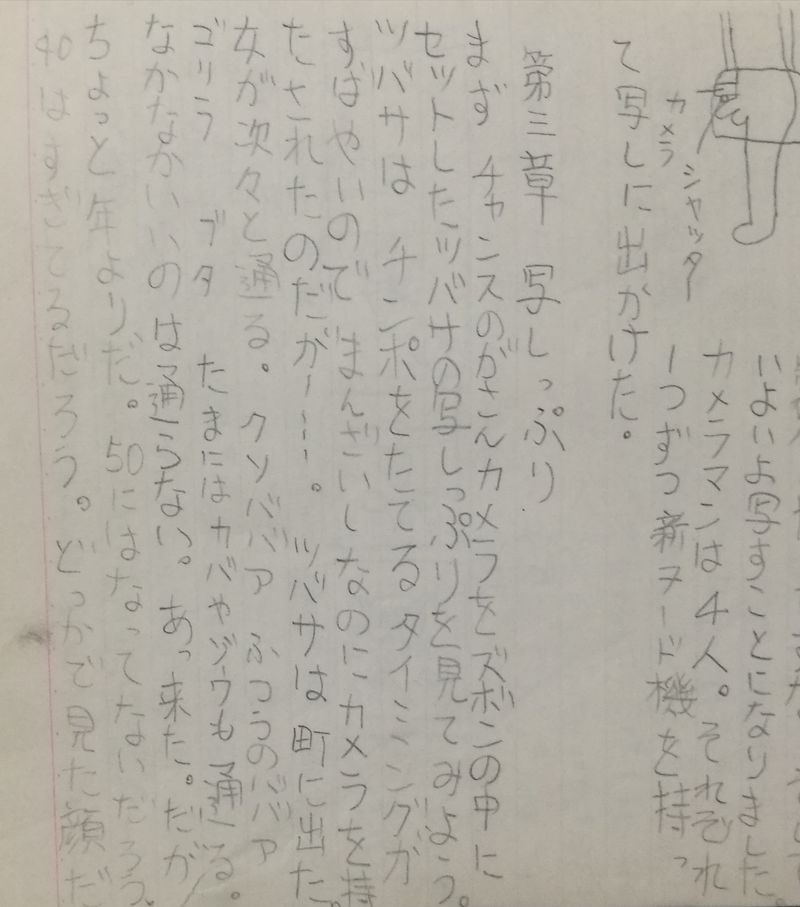 いよいよ写すことになりました。
カメラマンは4人。それぞれ
1つずつ新ヌード機を持っ
シャッター
カメラ
て写しに出かけた。
第三章 写しっぷり
まず チャンスのがさんカメラをズボンの中に
セットしたツバサの写しっぷりを見てみよう。
ツバサは チンポをたてるタイミングが
すばやいので まんざいしなのにカメラを持
たされたのだがー…。ツバサは町に出た。
女が次々と通る。クソババア ふつうのババア
ゴリラ ブタ たまにはカバやゾウも通る。
なかなかいいのは通らない。あっ来た。だが
ちょっと年よりだ。50にはなってないだろう。
40はすぎてるだろう。どっかで見た顔だ